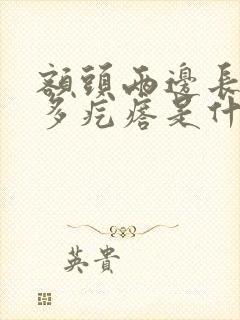 額頭兩邊長
多疙瘩是什
英貴